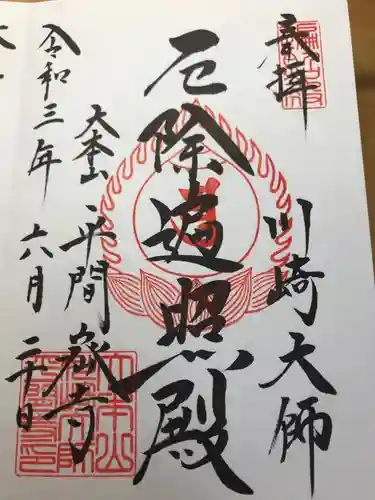 奉拝
川崎大師
厄除遍照殿
大本山
平間寺
令和三年六月二十日